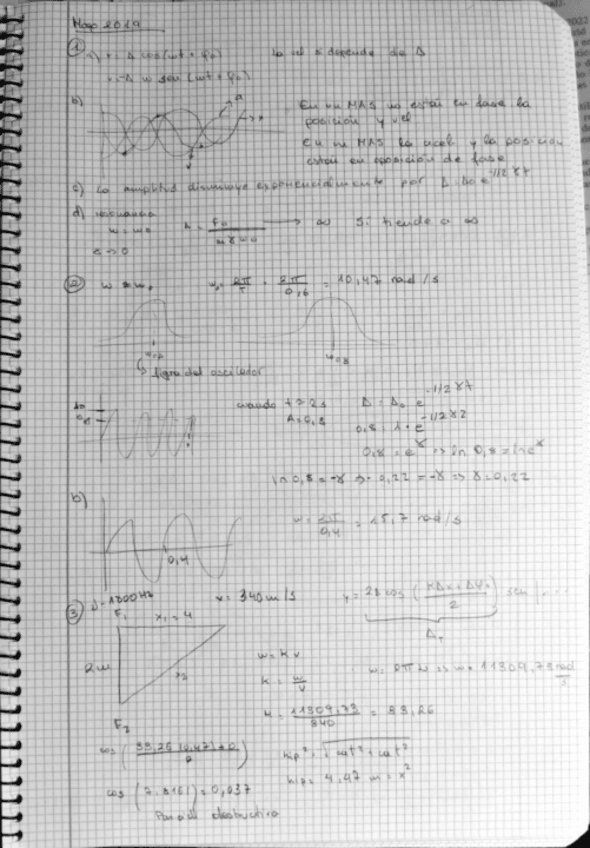 Mayo 2019
① a) x = A cos(ωt + φ₀) la vel si depende de A
v = -A ω sen (ωt + φ₀)
b) a
x
v
En un MAS no están en fase la
posición y vel
En un MAS la acel y la posición
están en oposición de fase
c) La amplitud disminuye exponencialmente por A = A₀ e^-1/2 γt
d) resonancia
ω = ω₀ A = F₀ / mγω₀ → ∞ Si tiende a ∞
→ 0
② ω ≈ ω₀ ω₀ = 2π/T = 2π/0,6 = 10,47 rad/s
↳ del oscilador
cuando t = 2s A = A₀ e^-1/2 γt
A = 0,8 0,8 = 1 · e^-1/2 γ2
0,8 = e^γ => ln 0,8 = ln e^γ
ln 0,8 = -γ => -0,22 = -γ => γ = 0,22
b)
0,4
ω = 2π/0,4 = 15,7 rad/s
③ ν = 1800 Hz v = 340 m/s y = 2A cos (KΔx + Δφ₀ / 2) sen (...
F₁ x₁ = 4
A_T
2m x₂
ω = k v ω = 2πν => ω = 11309,73 rad/s
k = ω/v
k = 11309,73 / 340 = 33,26
F₂
cos (33,26 (0,47) + 0 / 2) hip² = √cat² + cat²
hip = 4,47 m = x²
cos (7,8161) = 0,037
Parcial destructiva